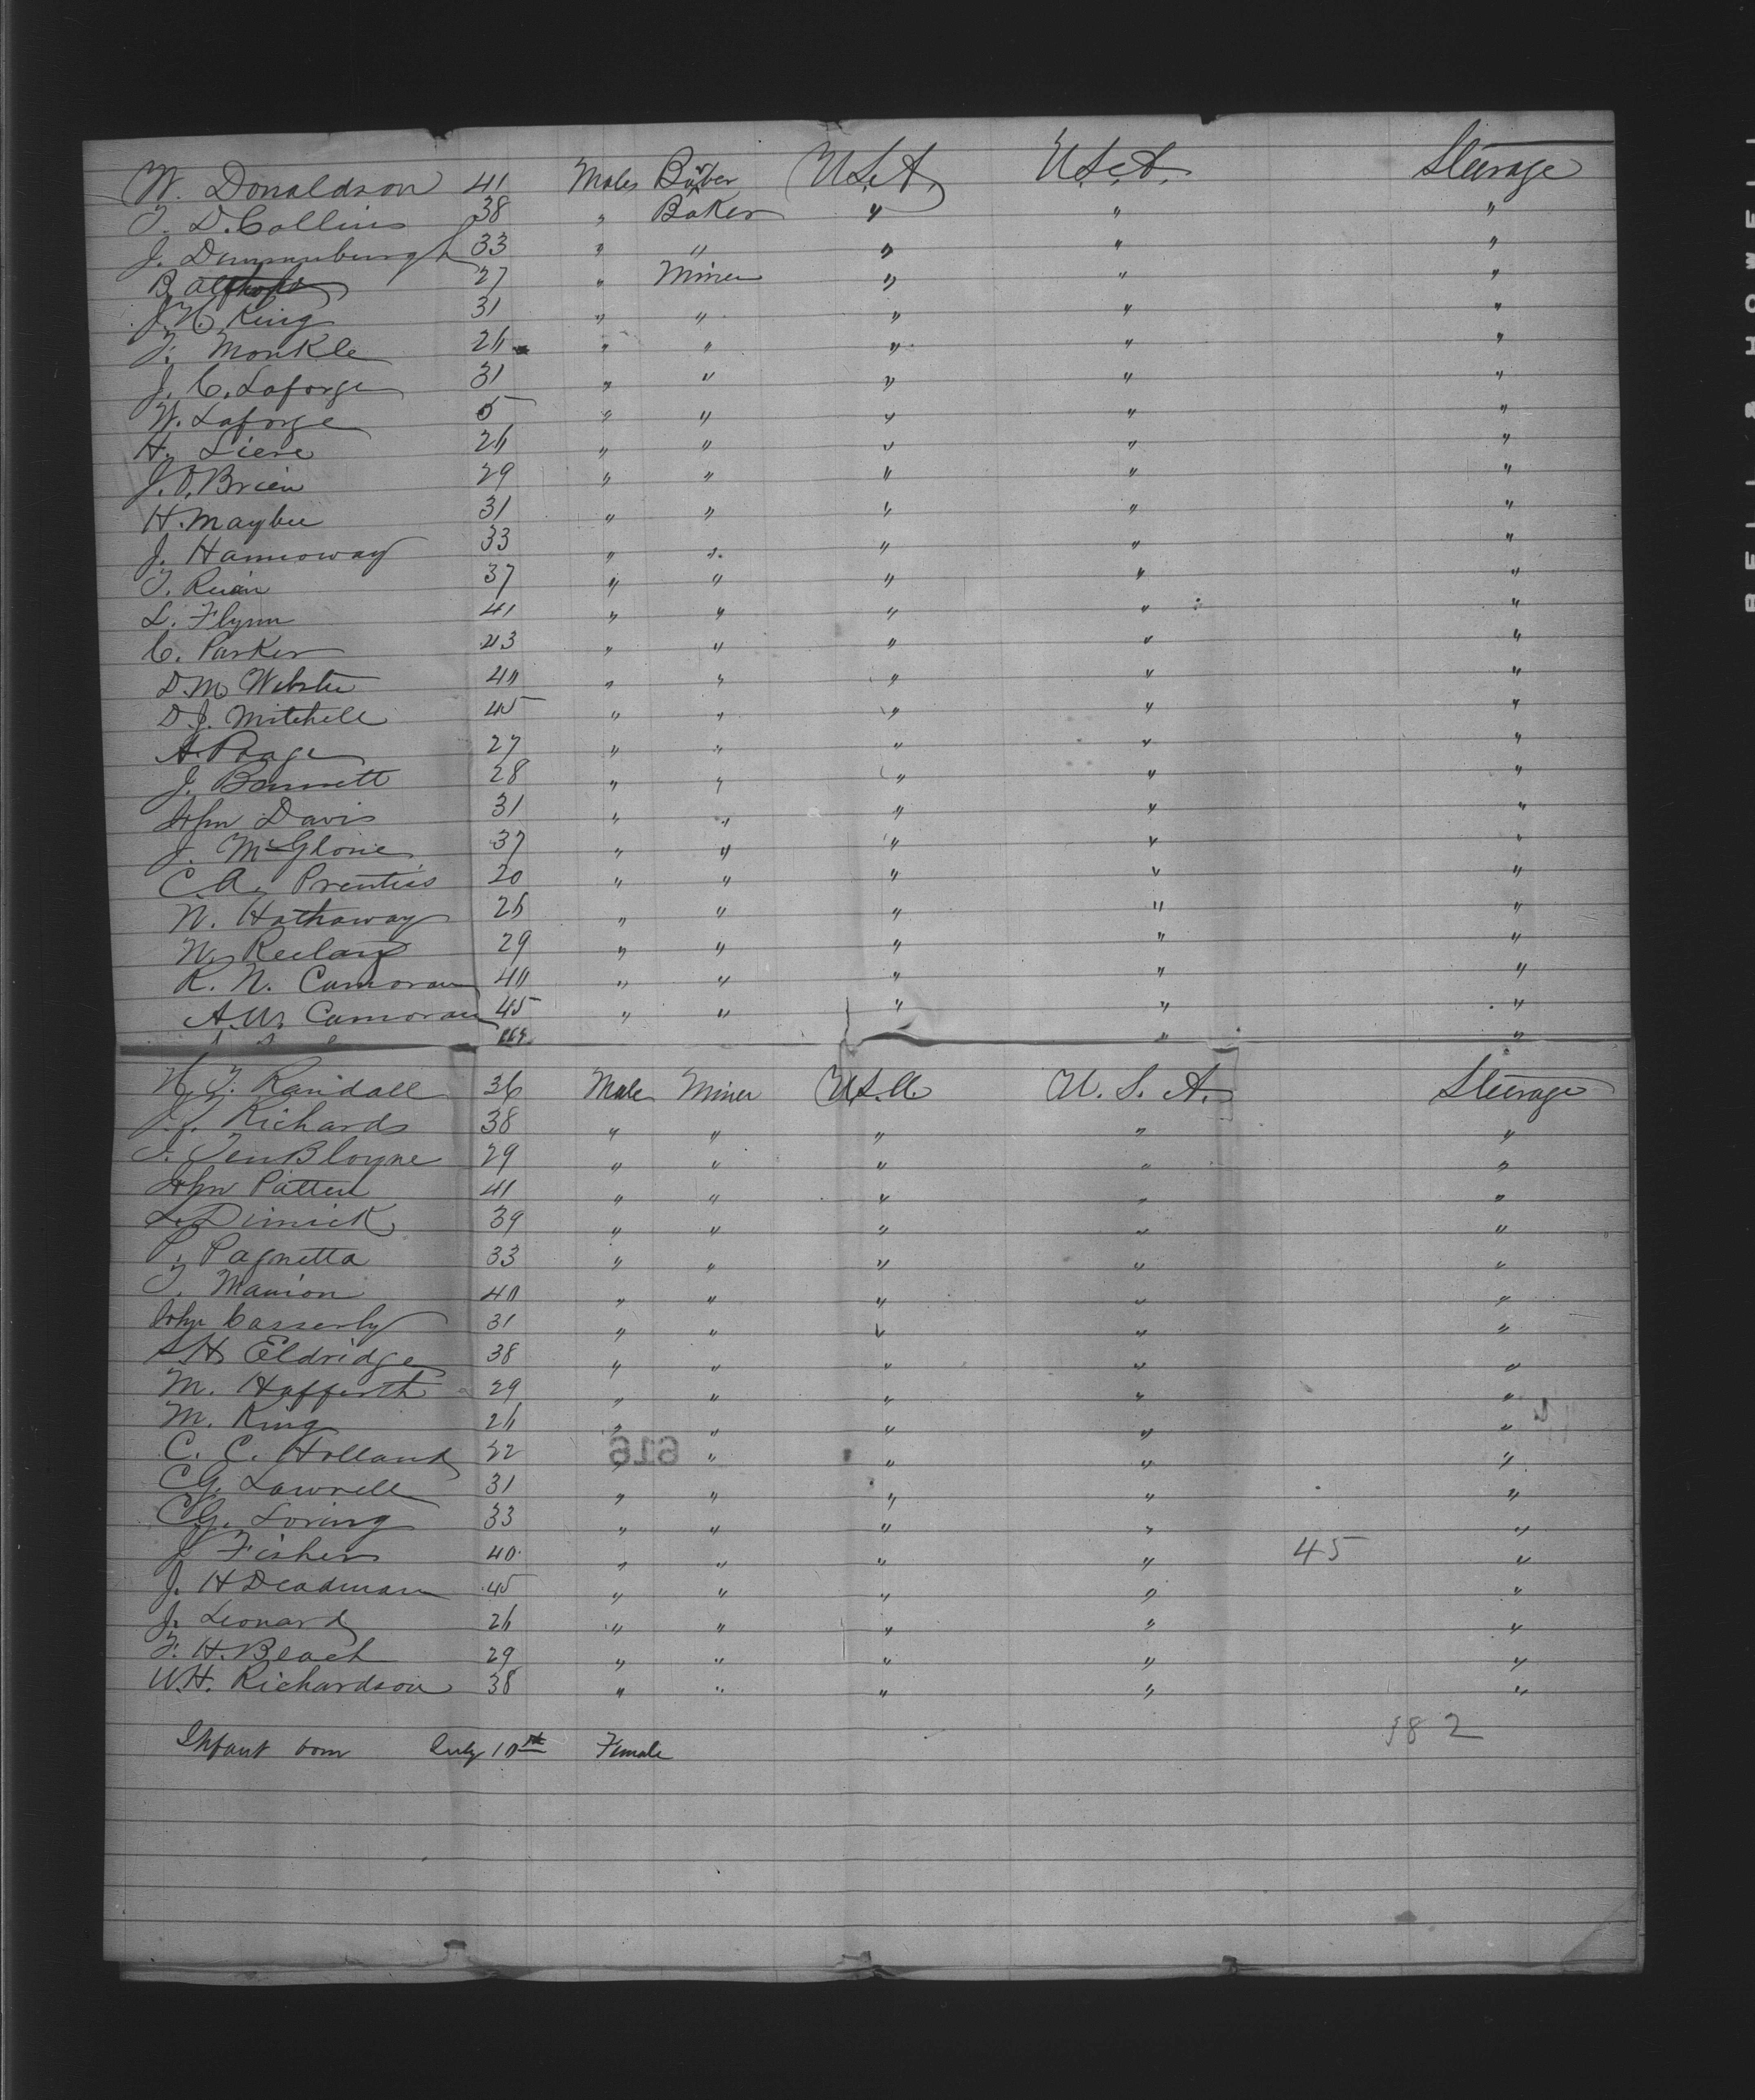 W. Donaldson 41 Males Barber U.S.A. U.S.A. Steerage
T. D. Collins 38 " Baker " " "
J. Dunnuburgh 33 " " " " "
B. 27 " Miner " " "
J. N. King 31 " " " " "
F. Monkle 26 " " " " "
J. C. Laforge 31 " " " " "
W. Laforge 5 " " " " "
H. Siere 26 " " " " "
J. O. Brien 29 " " " " "
H. Maybee 31 " " " " "
J. Hannoway 33 " " " " "
T. Ruian 37 " " " " "
L. Flynn 41 " " " " "
C. Parker 43 " " " " "
D. M. Webster 40 " " " " "
D. J. Mitchell 45 " " " " "
A. Paage 27 " " " " "
J. Bennett 28 " " " " "
John Davis 31 " " " " "
J. McGlone 37 " " " " "
C. A. Prentiss 20 " " " " "
N. Hathaway 26 " " " " "
W. Reelay 29 " " " " "
R. N. Camoran 40 " " " " "
A. W. Camoran 45 " " " " "
" "
N. T. Randall 36 Male Miner U.S.A. U.S.A. Steerage
J. J. Richards 38 " " " " "
J. TenBloyne 29 " " " " "
John Patten 41 " " " " "
L. Dimick 39 " " " " "
P. Pagnetta 33 " " " " "
T. Manion 40 " " " " "
John Casserly 31 " " " " "
S. H. Eldridge 38 " " " " "
M. Hafferth 29 " " " " "
M. King 26 " " " " "
C. C. Holland 32 " " " " "
616
C. G. Lawrell 31 " " " " "
C. G. Loring 33 " " " " "
J Fisher 40 " " " " 45 "
J. H Deadman 45 " " " " "
J. Leonard 26 " " " " "
F. H. Beach 29 " " " " "
W. H. Richardson 38 " " " " "
382
Infant born July 10th Female